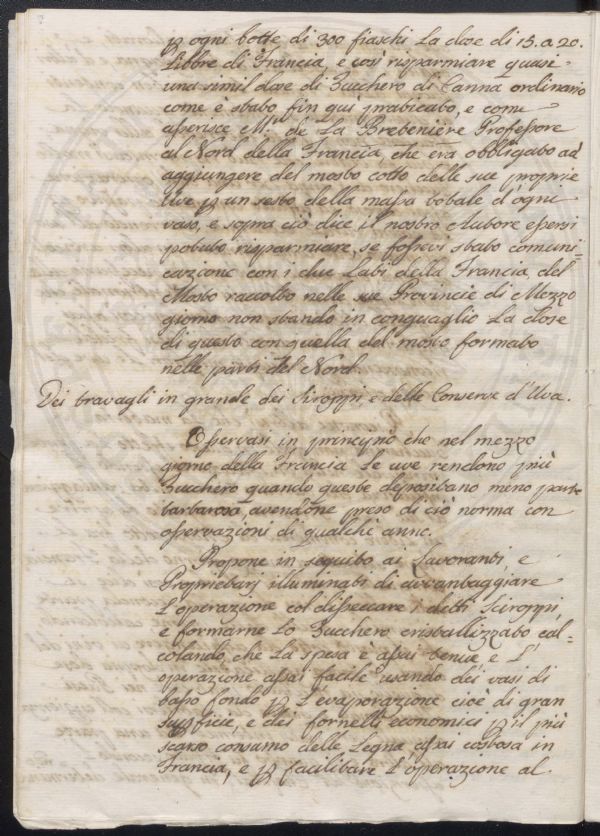 ꝑ ogni botte di 300 fiaschi La dose di 15. a 20.
Libbre di Francia, e così risparmiare quasi
una simil dose di Zucchero di Canna ordinario
come è stato fin qui praticato, e come
asserisce M.r de La Brebeniere Professore
al Nord della Francia, che era obbligato ad
aggiungere del mosto cotto delle sue proprie
Uve ꝑ un sesto della massa totale d'ogni
vaso, e sopra ciò dice il nostro Autore essersi
potuto risparmiare, se fossevi stato comuni=
cazione con i due Lati della Francia, del
Mosto raccolto nelle sue Provincie di Mezzo
giorno non stando in conguaglio La dose
di questo con quella del mosto formato
nelle parti del Nord.
Dei travagli in grande dei Siroppi e delle Conserve d'Uva.
Osservasi in principio che nel mezzo
giorno della Francia Le uve rendono più
Zucchero quando queste depositano meno parte
tartarosa, avendone preso di ciò norma con
osservazioni di qualche anno.
Propone in seguito ai Lavoranti e
Proprietarj illuminati di avvantaggiare
L'operazione col disseccare i detti Sciroppi,
e formarne Lo Zucchero cristallizzato cal=
colando, che La spesa è assai tenue, e L'
operazione assai facile usando dei vasi di
basso fondo ꝑ L'evaporazione cioè di gran
suꝑficie, e dei fornelli economici ꝑ il più
scarso consumo delle Legna assai costosa in
Francia, e ꝑ facilitare L'operazione al